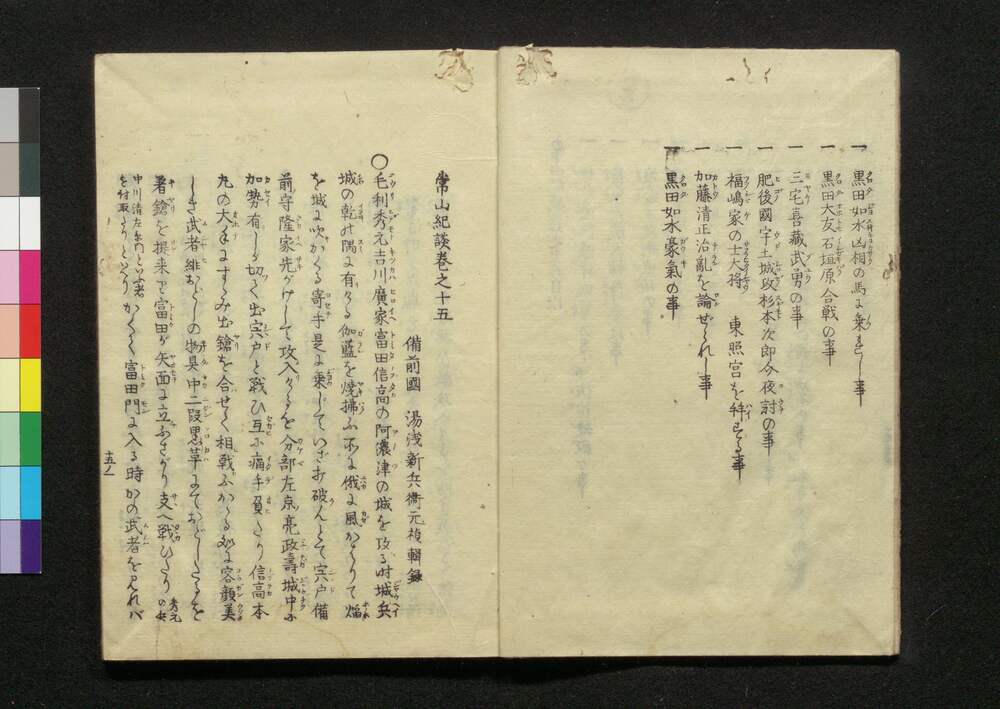 一 黒田如水凶相の馬に乗れし事
一 黒田大友石垣原合戦の事
一 三宅喜藏武勇の事
一 肥後國宇土城攻杉本次郎今夜討の事
一 福嶋家の士大将 東照宮を拝する事
一 加藤清正治亂を論ぜられし事
一 黒田如水豪氣の事
常山紀談巻之十五
備前國 湯浅新兵衞元禎輯録
〇毛利秀元吉川廣家富田信高の阿濃津の城を攻る時城兵
城の乾の隅に有ける伽藍を焼拂ふ所に俄に風かはりて焔
を城に吹かくる寄手是に乗じていざ打破んとて宍戸備
前守隆家先がけして攻入けるを分部左京亮政壽城中に
加勢有しが切て出宍戸と戦ひ互に痛手負たり信高本
丸の大手にすゝみ出鎗を合せて相戦ふかゝる処に容顔美
しき武者緋おどしの物具中二段黒革にておどしたるを
著鎗を提来て富田が矢面に立ふさがり支へ戦ひたり 秀元の兵
中川清左衛門といふ者を付取たりといへり かくて富田門に入る時かの武者を見れバ
十五ノ一